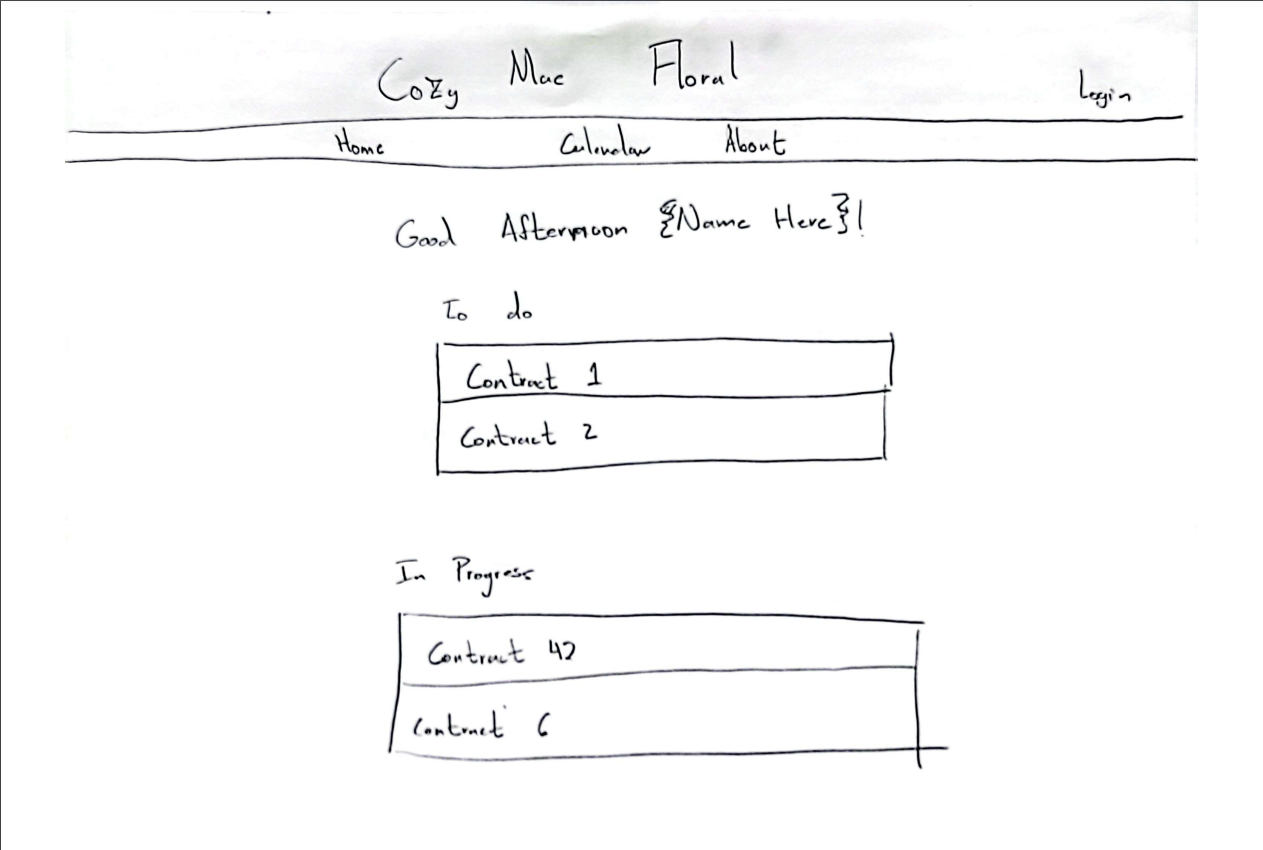 Cozy Mae Floral
Login
Home Calendar About
Good Afternoon {Name Here}!
To do
Contract 1
Contract 2
In Progress
Contract 42
Contract 6